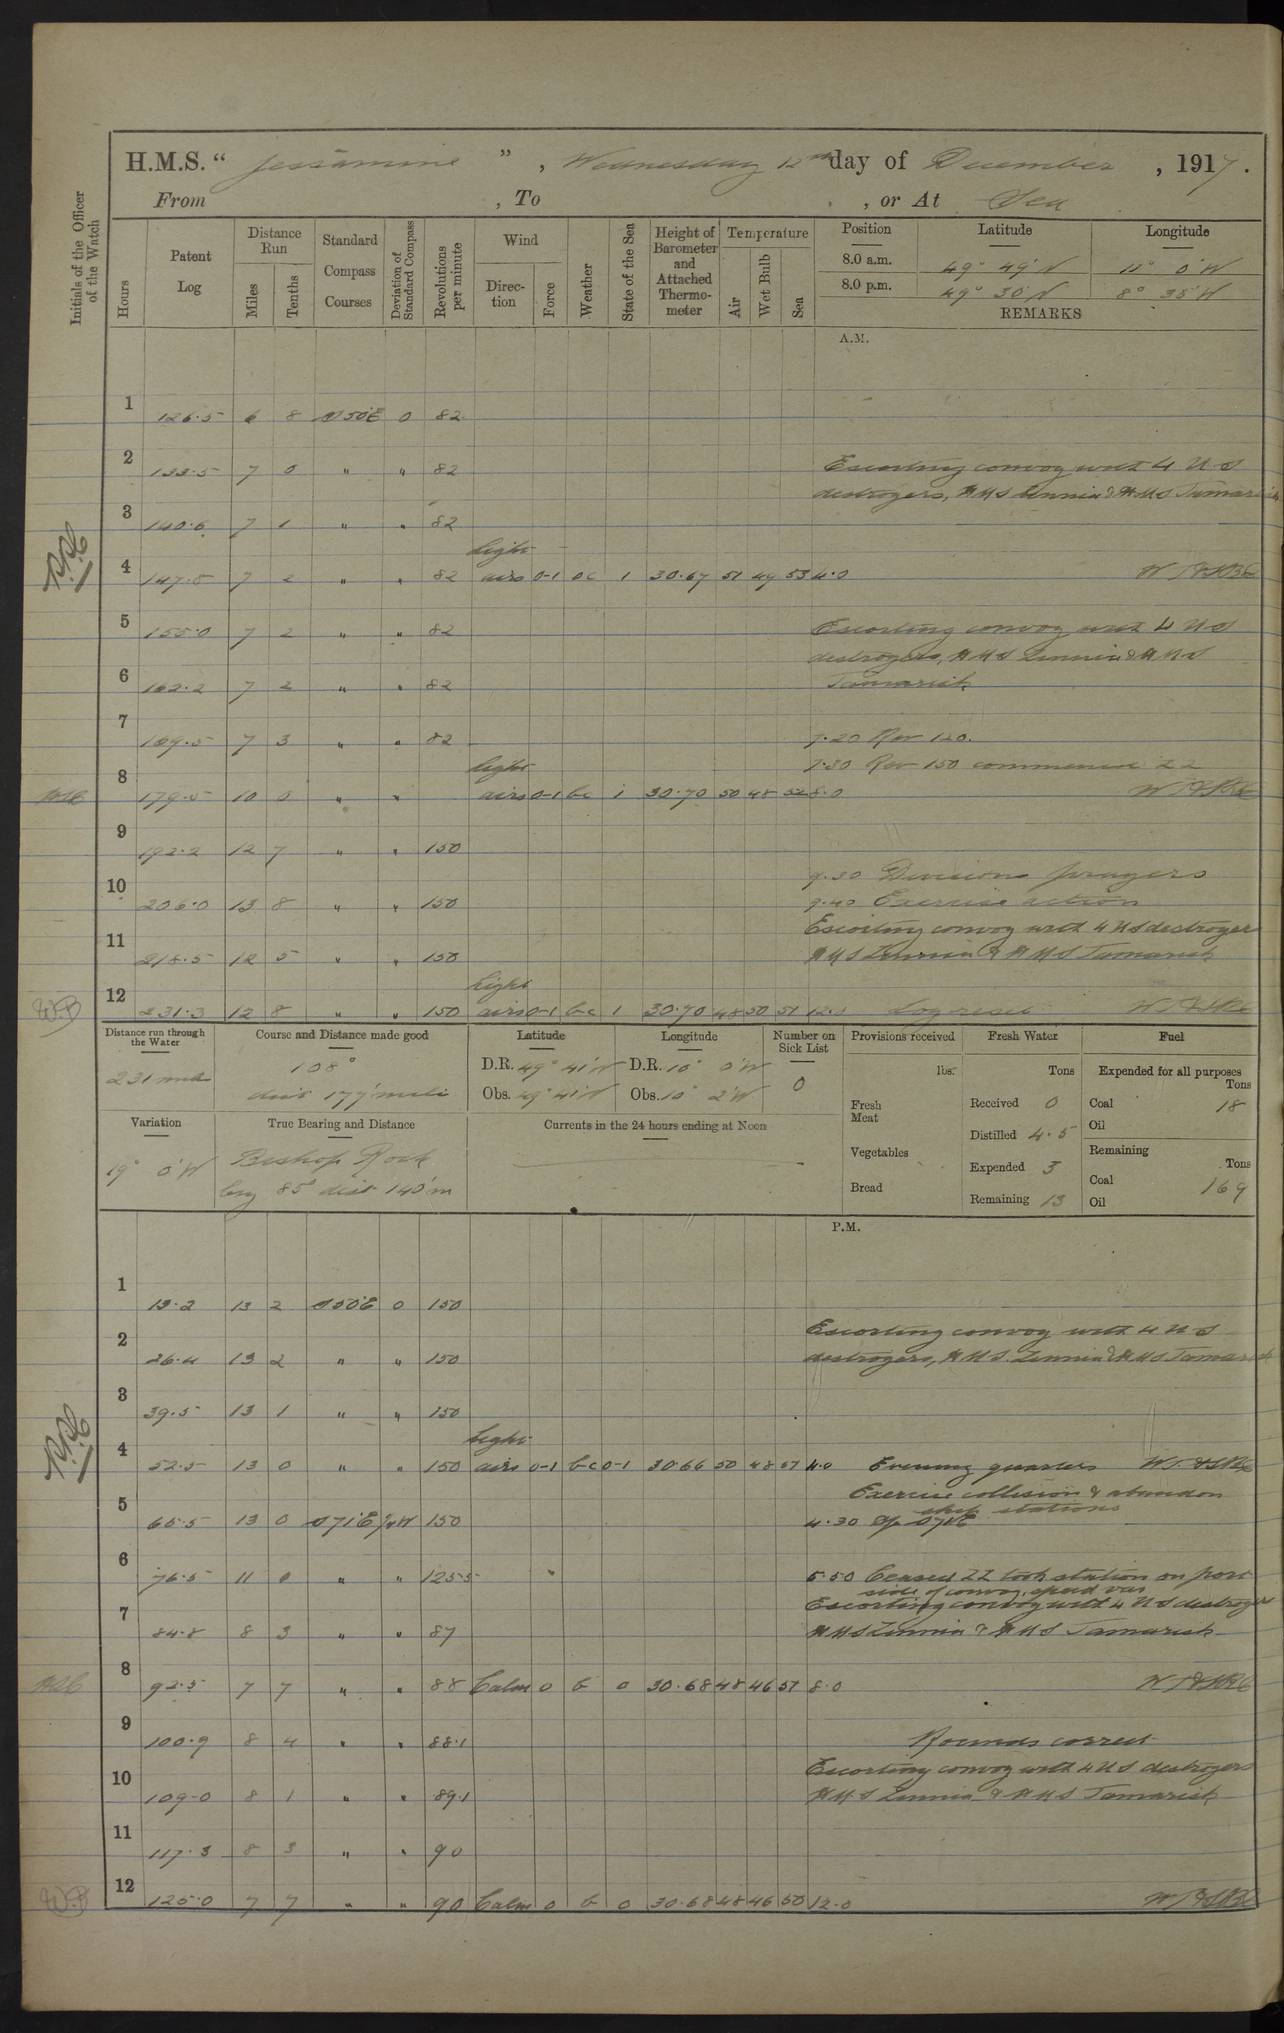 H.M.S. “ Jessamine ” , Wednesday 12th day of December , 1917.
From , To , or At Sea
Initials of the Officer of the Watch
Hours
Patent Log
Distance Run
Miles
Tenths
Standard Compass Courses
Deviation of Standard Compass
Revolutions per minute
Wind
Direction
Force
Weather
State of the Sea
Height of Barometer and Attached Thermometer
Temperature
Air
Wet Bulb
Sea
Position Latitude Longitude
8.0 a.m. 49° 49' N 11° 0' W
8.0 p.m. 49° 30' N 8° 35' W
REMARKS
A.M.
1 126.5 6 8 S 50 E 0 82
2 133.5 7 0 " " 82 Escorting convoy with 4 U S
destroyers, H M S Zinnia & H M S Tamarisk
3 140.6 7 1 " " 82
light
4 147.8 7 2 " " 82 airs 0-1 oc 1 30.67 51 49 53 4.0
5 155.0 7 2 " " 82 Escorting convoy with 4 U S
destroyers, H M S Zinnia & H M S
6 162.2 7 2 " " 82 Tamarisk
7 169.5 7 3 " " 82 7.20 Rev 120.
light 7.30 Rev 150 commenced ZZ
8 179.5 10 0 " " airs 0-1 bc 1 30.70 50 48 52 8.0
9 192.2 12 7 " " 150
9.30 Divisions prayers
10 206.0 13 8 " " 150 9.40 Exercise action
Escorting convoy with 4 U S destroyers
11 218.5 12 5 " " 150 H M S Zinnia & H M S Tamarisk
light
12 231.3 12 8 " " 150 airs 0-1 bc 1 30.70 48 50 51 12.0 Log reset
Distance run through the Water
231 miles
Course and Distance made good
108°
dist 177' miles
Latitude
D.R. 49° 41' N
Obs. 49° 41' N
Longitude
D.R. 10° 0' W
Obs. 10° 2' W
Number on Sick List
0
Provisions received
lbs.
Fresh Meat
Vegetables
Bread
Fresh Water
Tons
Received 0
Distilled 4.5
Expended 3
Remaining 13
Fuel
Expended for all purposes
Tons
Coal 18
Oil
Remaining
Tons
Coal 169
Oil
Variation
19° 0' W
True Bearing and Distance
Bishop Rock
brg 85° dist 140' m
Currents in the 24 hours ending at Noon
P.M.
1 13.2 13 2 S 50 E 0 150
Escorting convoy with 4 U S
2 26.4 13 2 " " 150 destroyers, H M S Zinnia & H M S Tamarisk
3 39.5 13 1 " " 150
light
4 52.5 13 0 " " 150 airs 0-1 bc 0-1 30.66 50 48 51 4.0 Evening quarters
Exercise collision & abandon
ship stations
5 65.5 13 0 S 71 E 150 4.30 S 71 E
6 76.5 11 0 " " 125.5 5.50 Ceased ZZ took station on port
side of convoy, speed var
Escorting convoy with 4 U S destroyers
7 84.8 8 3 " " 87 H M S Zinnia & H M S Tamarisk
8 92.5 7 7 " " 88 Calm 0 b 0 30.68 48 46 51 8.0
9 100.9 8 4 " " 88.1 Rounds correct
Escorting convoy with 4 U S destroyers
10 109.0 8 1 " " 89.1 H M S Zinnia & H M S Tamarisk
11 117.3 8 3 " " 90
12 125.0 7 7 " " 90 Calm 0 b 0 30.68 48 46 50 12.0